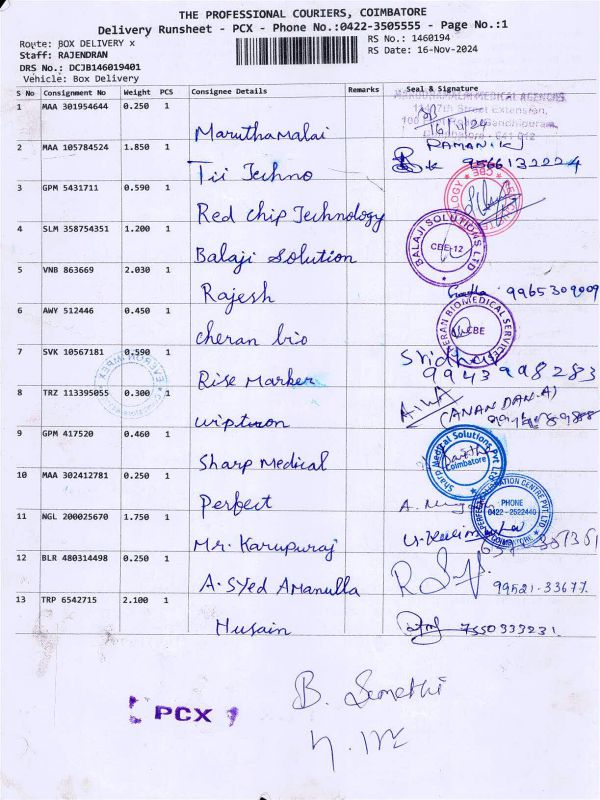 THE PROFESSIONAL COURIERS, COIMBATORE
Delivery Runsheet - PCX - Phone No.:0422-3505555 - Page No.:1
Route: BOX DELIVERY x
RS No.: 1460194
Staff: RAJENDRAN
RS Date: 16-Nov-2024
DRS No.: DCJB146019401
Vehicle: Box Delivery
S No Consignment No Weight PCS Consignee Details Remarks Seal & Signature
1 MAA 301954644 0.250 1 Maruthamalai
MARUDHAMALAI MEDICAL AGENCIES
Street Extension,
100
Gandhipuram,
2 MAA 105784524 1.850 1 Tii Techno
RAMANI K
3 GPM 5431711 0.590 1 Red chip Technology
4 SLM 358754351 1.200 1 Balaji Solution
BALAJI SOLUTIONS LTD
CBE-12
5 VNB 863669 2.030 1 Rajesh
9965309009
6 AWY 512446 0.450 1 cheran bio
CHERAN BIOMEDICAL SERVICES
CBE
7 SVK 10567181 0.590 1 Rise Marker
Sridhar
99439 98283
8 TRZ 113395055 0.300 1 wiptron
(ANANDAN.A)
9 GPM 417520 0.460 1 Sharp Medical
Sharp Medical Solutions Pvt Ltd
Coimbatore
10 MAA 302412781 0.250 1 Perfect
PHONE
0422-2522446
11 NGL 200025670 1.750 1 Mr. Karupuraj
12 BLR 480314498 0.250 1 A. Syed Amanulla
99521-33677.
13 TRP 6542715 2.100 1 Husain
7550333231.
PCX